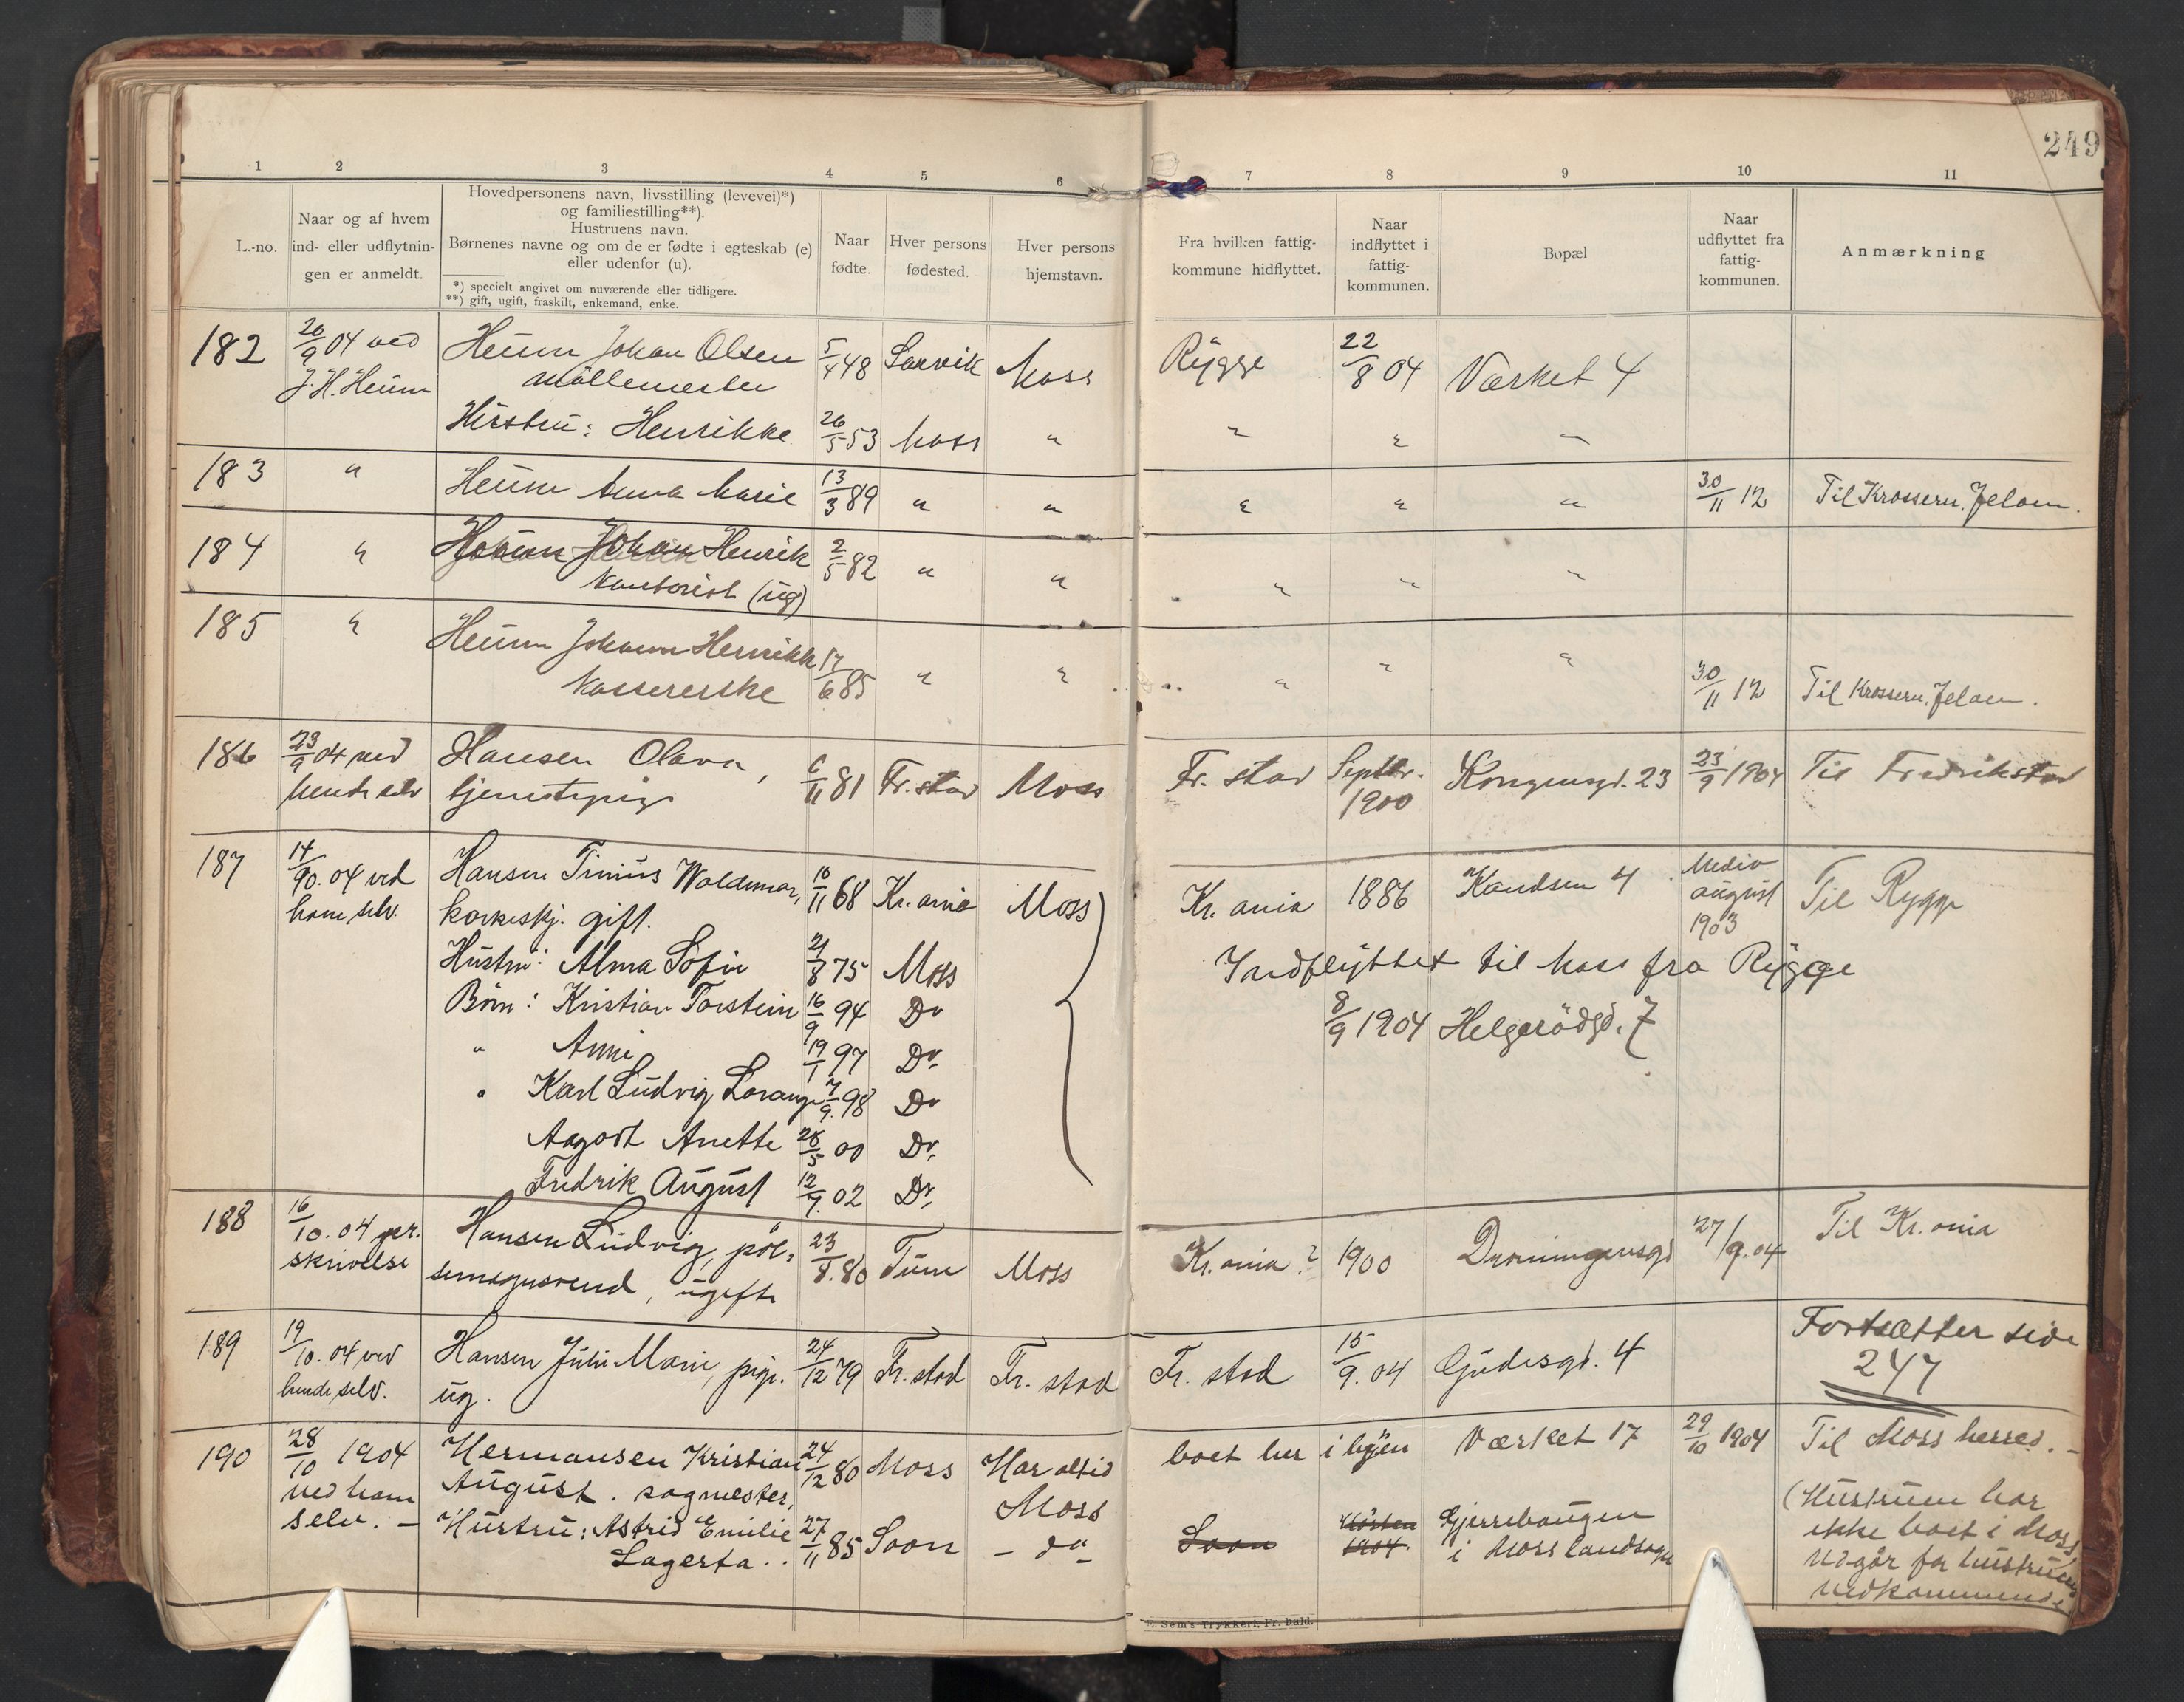 249
1 2 3 4 5 6 7 8 9 10 11
L.-no.
Naar og af hvem
ind- eller udflytnin-
gen er anmeldt.
Hovedpersonens navn, livsstilling (levevei)*)
og familiestilling**).
Hustruens navn.
Børnenes navne og om de er fødte i egteskab (e)
eller udenfor (u).
*) specielt angivet om nuværende eller tidligere.
**) gift, ugift, fraskilt, enkemand, enke.
Naar
fødte.
Hver persons
fødested.
Hver persons
hjemstavn.
Fra hvilken fattig-
kommune hidflyttet.
Naar
indflyttet i
fattig-
kommunen.
Bopæl
Naar
udflyttet fra
fattig-
kommunen.
Anmærkning
182 20/9 04 ved Heum Johan Olsen 5/4 48 Larvik Moss Rygge 22/8 04 Værket 4
J. H. Heum Møllemester
Hustru: Henrikke 26/5 53 Moss " " " "
183 " Heum Anna Marie 13/3 89 " " " " " 30/11 12 Til Krossern, Jeløen.
184 " Heum Johan Henrik 2/5 82 " " " " "
Kontorist (ug)
185 " Heum Johanne Henrikke 17/6 85 " " " " " 30/11 12 Til Krossern, Jeløen.
Kassererske
186 23/9 04 ved Hansen Olava, 6/11 81 Fr.stad Moss Fr. stad Septbr. Kongensgd. 23 23/9 1904 Til Fredrikstad
hende selv tjenestepige 1900
187 14/90. 04 ved Hansen Tinius Waldemar, 10/11 68 Kr.ania Moss Kr. ania 1886 Kandsen 4 Medio
ham selv. korkeskj. gift. august Til Rygge
1903
Hustru: Alma Sofie 21/8 75 Moss Indflyttet til Moss fra Rygge
Børn: Kristian Torstein 16/9 94 Do 8/9 1904 Helgerødgd. 7
" Anni 19/1 97 Do
" Karl Ludvig Lorang 7/9. 98 Do
Aagodt Anette 28/5 00 Do
Fredrik August 12/9. 02 Do
188 16/10. 04 per. Hansen Ludvig, pøl- 23/8. 80 Tune Moss Kr. ania? 1900 Dronningensgd 27/9. 04 Til Kr. ania
skrivelse semagersvend, ugift
189 19/10. 04 ved Hansen Juli Marie, pige. 24/12 79 Fr. stad Fr. stad Fr. stad 15/9. 04 Gudesgd. 4 Fortsætter side
hende selv. ug. 247
190 28/10 1904 Hermansen Kristian 24/12 80 Moss Har altid boet her i byen Værket 17 29/10 1904 Til Moss herred. –
ved ham August. sagmester, Moss
selv. – Hustru: Astrid Emilie 27/11 85 Soon – do – Soon Høsten Gjerrebaugen
Lagerta. 1904. i Moss landsogn
(Hustruen har
ikke boet i Moss
udgår for hustruens
vedkommende)
E. Sem's Trykkeri, Fr.hald.